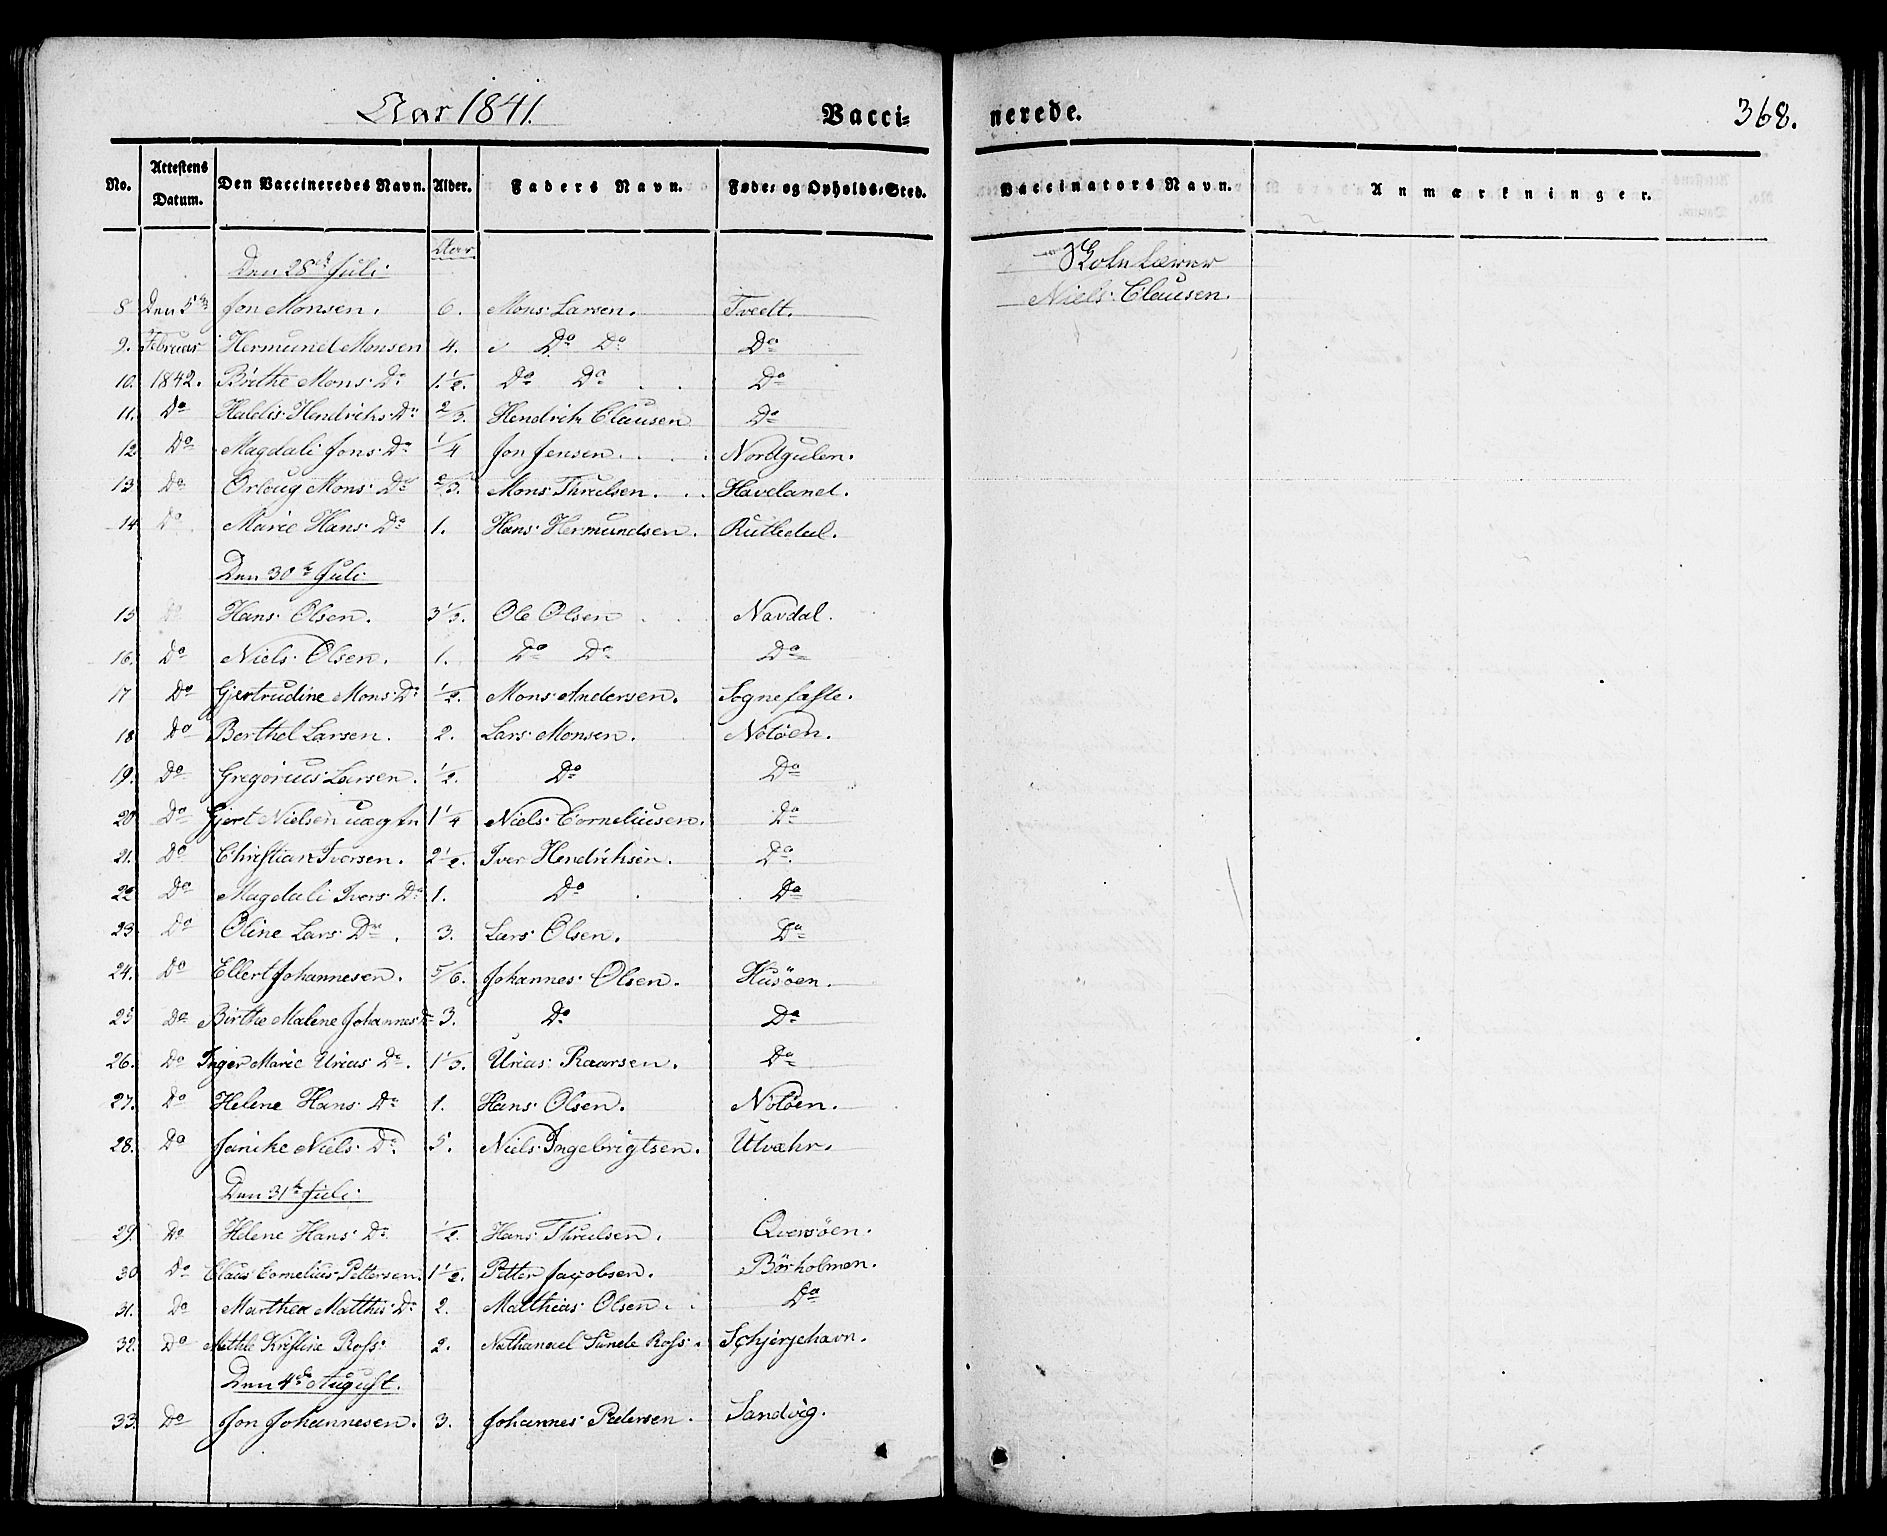 Aar 1841. Vacci= nerede. 368.
No. Attestens Datum. Den Vaccineredes Navn. Alder. Faders Navn. Føde= og Opholds=Sted. Vaccinators Navn. Anmærkninger.
Den 28de Juli Aar Skolelærer
8. Den 5te Jon Monsen. 6. Mons Larsen. Tvedt. Niels Clausen.
9. Februar Hermund Monsen 4. Do Do Do
10. 1842. Birthe Mons Dr 1.1/2. Do Do Do
11. Do Haldis Hendrichs Dr 2/3. Hendrich Clausen Do
12 Do Magdali Jons Dr 1/4 Jon Jensen. Nordgulen.
13 Do Orloug Mons Dr 2/3. Mons Thrulsen. Haveland.
14 Do Marie Hans Dr 1. Hans Hermundsen. Rutledal.
Den 30te Juli
15 Do Hans Olsen. 3 1/3. Ole Olsen Navdal.
16. Do Niels Olsen. 1. Do Do Do
17 Do Gjertrudine Mons Dr 1/2. Mons Andersen. Sognefæste.
18 Do Berthel Larsen. 2. Lars Monsen. Notöen.
19. Do Gregorius Larsen. 1/2. Do Do
20 Do Gjert Nielsen uægte 1 1/4 Niels Corneliusen. Do
21. Do Christian Iversen. 2 1/2. Iver Hendrichsen. Do
22 Do Magdali Ivers Dr 1. Do Do
23 Do Oline Lars Dr. 3. Lars Olsen. Do
24. Do Ellert Johannesen. 5/6. Johannes Olsen. Husöen.
25 Do Birthe Malene Johannes Dr 3. Do Do
26. Do Inger Marie Urias Dr. 1 1/3. Urias Raarsen. Do
27. Do Helene Hans Dr 1. Hans Olsen. Notöen.
28. Do Janike Niels Dr 5. Niels Ingebrigtsen. Utvæhr.
Den 31te Juli
29. Do Helene Hans Dr 1/2. Hans Thrulsen. Qversöen.
30 Do Claus Cornelius Pettersen. 1 1/2. Petter Jacobsen. Börholmen.
31. Do Marthea Matthis Dr 2. Matthias Olsen. Do
32. Do Mathle Kristine Ross 2. Nathanael Sunde Ross. Schjerjehavn.
Den 4de August.
33. Do Jon Johannesen. 3. Johannes Pedersen. Sandvig.